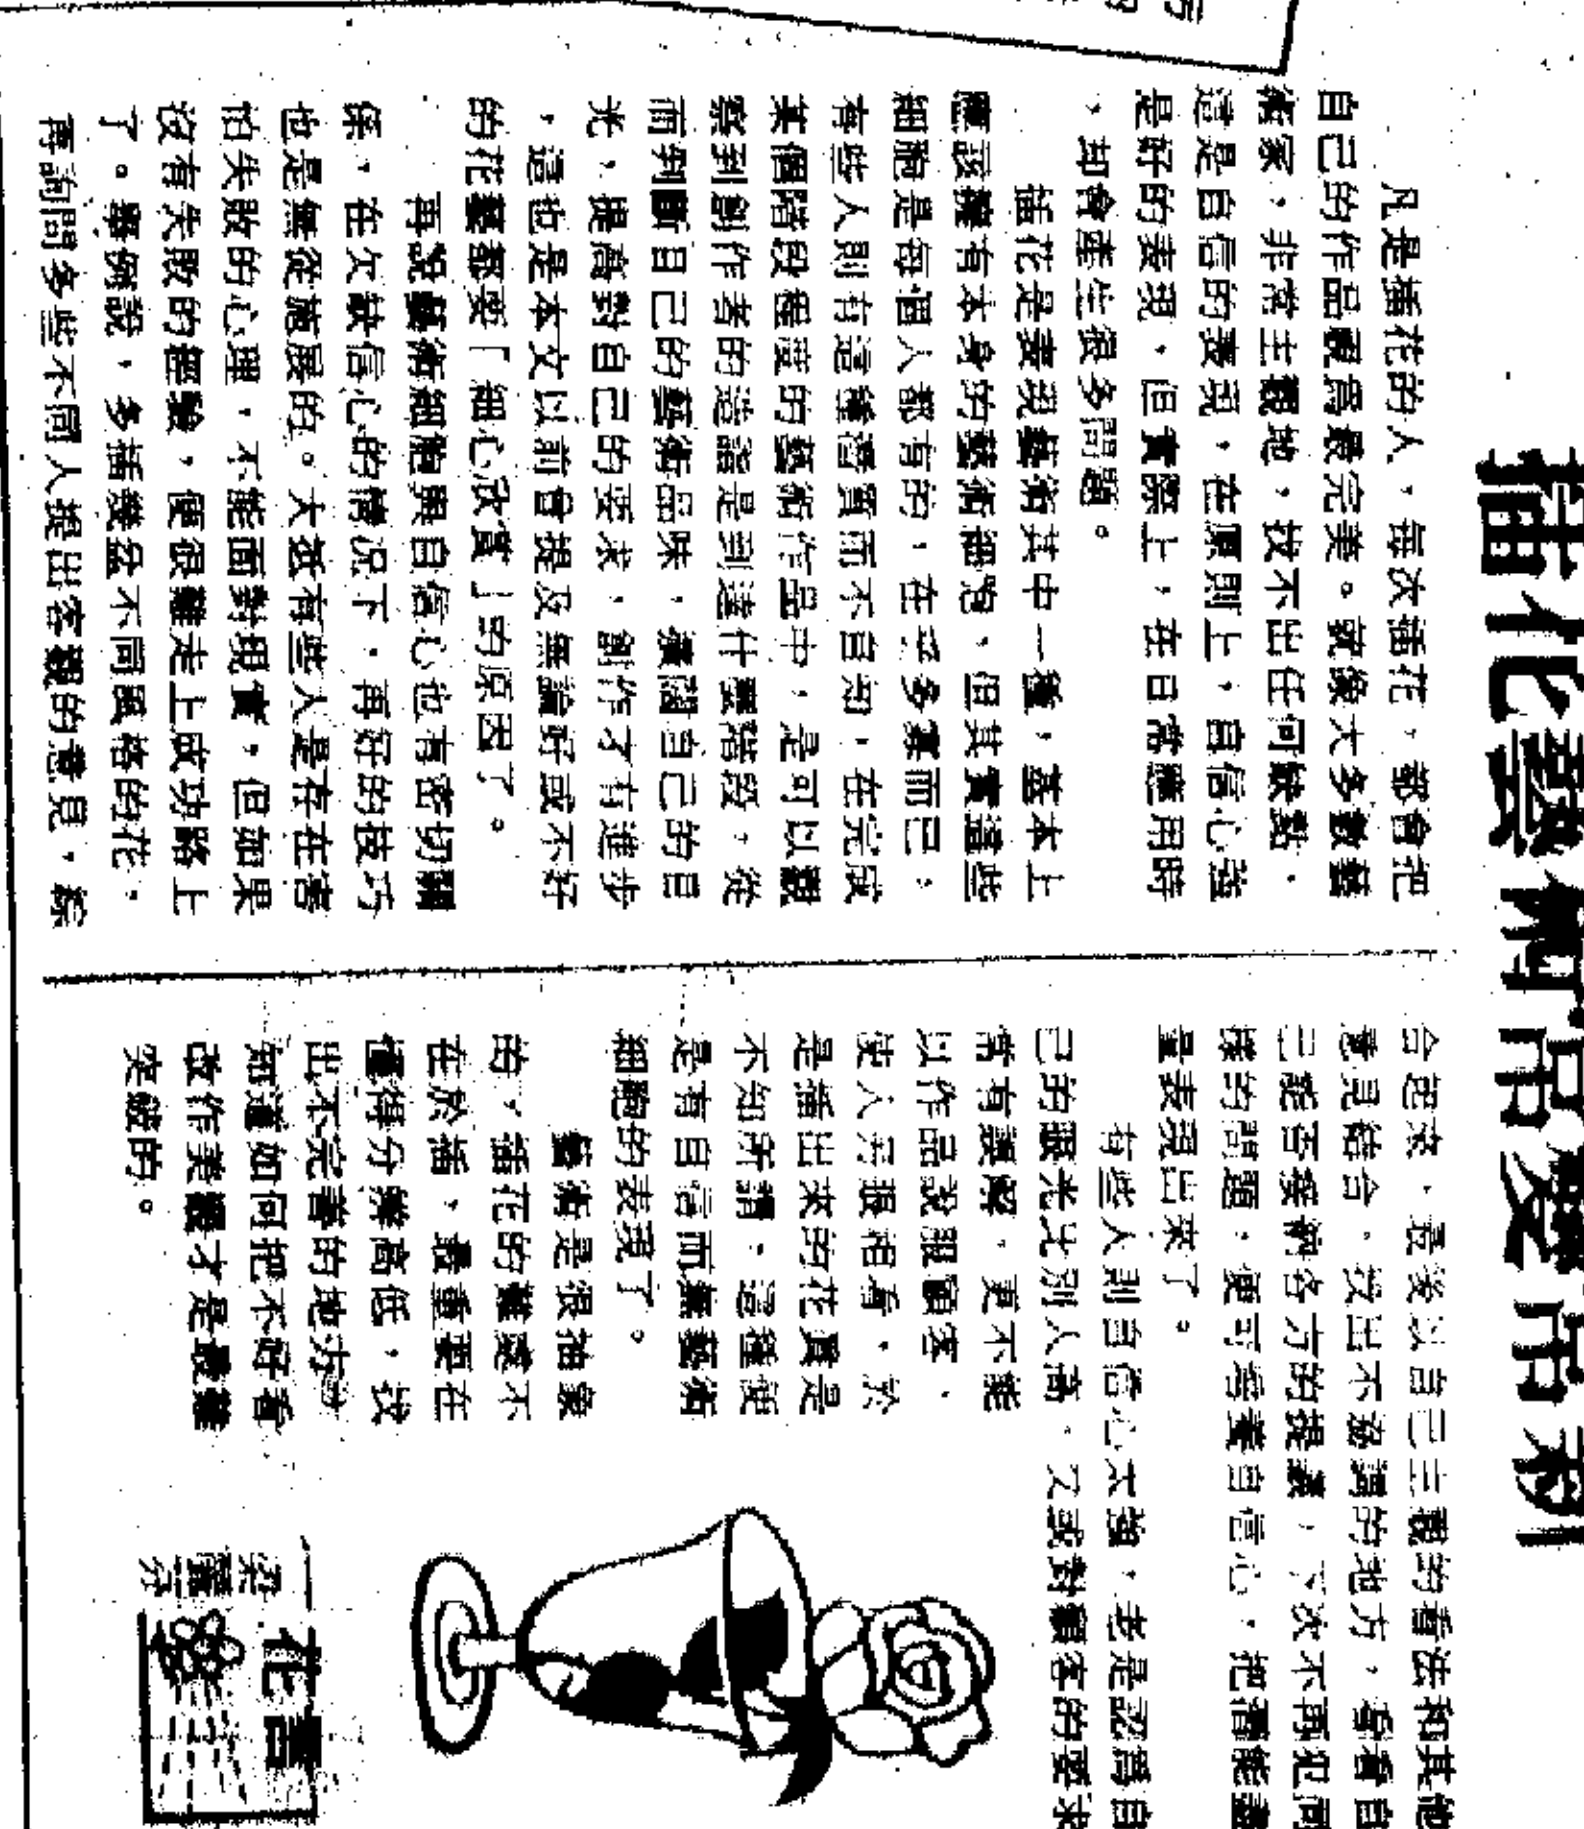 插花藝術
凡是插花的人，每次插花，都會把
自己的作品觀爲最完美。就像大多數藝
術家，非常主觀地，找不出任何缺點，
這是自信的表現，在原則上，自信心強
是好的表現，但實際上，在日常應用時
，却會產生很多問題。
插花是表現藝術其中一種，基本上
應該擁有本身的藝術細胞，但其實這些
細胞是每個人都有的，在乎多寡而已，
有些人則有這種潛質而不自知，在完成
某個階段程度的藝術作品中，是可以觀
察到創作者的造詣是到達什麼階段，從
而判斷自己的藝術品味，擴闊自己的目
光，提高對自己的要求，創作才有進步
，這也是本文以前曾提及無論好或不好
的花藝都要「細心欣賞」的原因了。
再說藝術細胞與自信心也有密切關
係，在欠缺信心的情況下，再好的技巧
也是無從施展的。大抵有些人是存在害
怕失敗的心理，不能面對現實，但如果
沒有失敗的經驗，便很難走上成功路上
了。舉例說，多插幾盆不同風格的花，
再詢問多些不同人提出客觀的意見，綜
合起來，最後以自己主觀的看法和其他
意見結合，找出不協調的地方，看看自
己能否接納各方的提議，下次不再犯同
樣的問題，便可培養自信心，把潛能盡
量表現出來了。
有些人則自信心太強，老是認爲自
己的眼光比別人高，又或對顧客的要求
常有誤解，更不能
以作品說服顧客，
使人另眼相看，於
是插出來的花真是
不知所謂，這種便
是有自信而無藝術
細胞的表現了。
藝術是很抽象
的，插花的難處不
在於插，最重要在
懂得分辨高低，找
出不完善的地方，
知道如何把不好看
改作美觀才是最難
突破的。
花書
梁
麗
芬